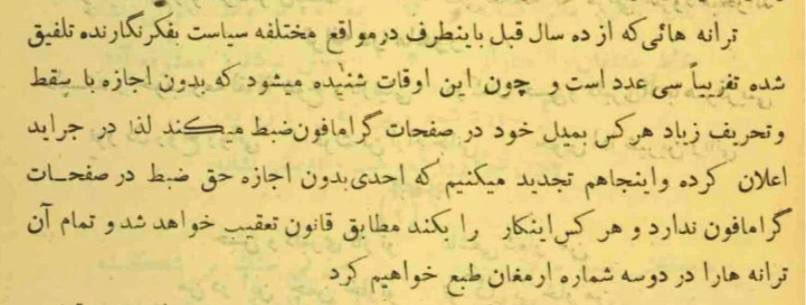 ترانه هائی که از ده سال قبل باینطرف در مواقع مختلفه سیاست بفکر نگارنده تلفیق
شده تقریباً سی عدد است و چون این اوقات شنیده میشود که بدون اجازه با سقط
و تحریف زیاد هر کس بمیل خود در صفحات گرامافون ضبط میکند لذا در جراید
اعلان کرده و اینجا هم تجدید میکنیم که احدی بدون اجازه حق ضبط در صفحات
گرامافون ندارد و هر کس اینکار را بکند مطابق قانون تعقیب خواهد شد و تمام آن
ترانه ها را در دو سه شماره ارمغان طبع خواهیم کرد